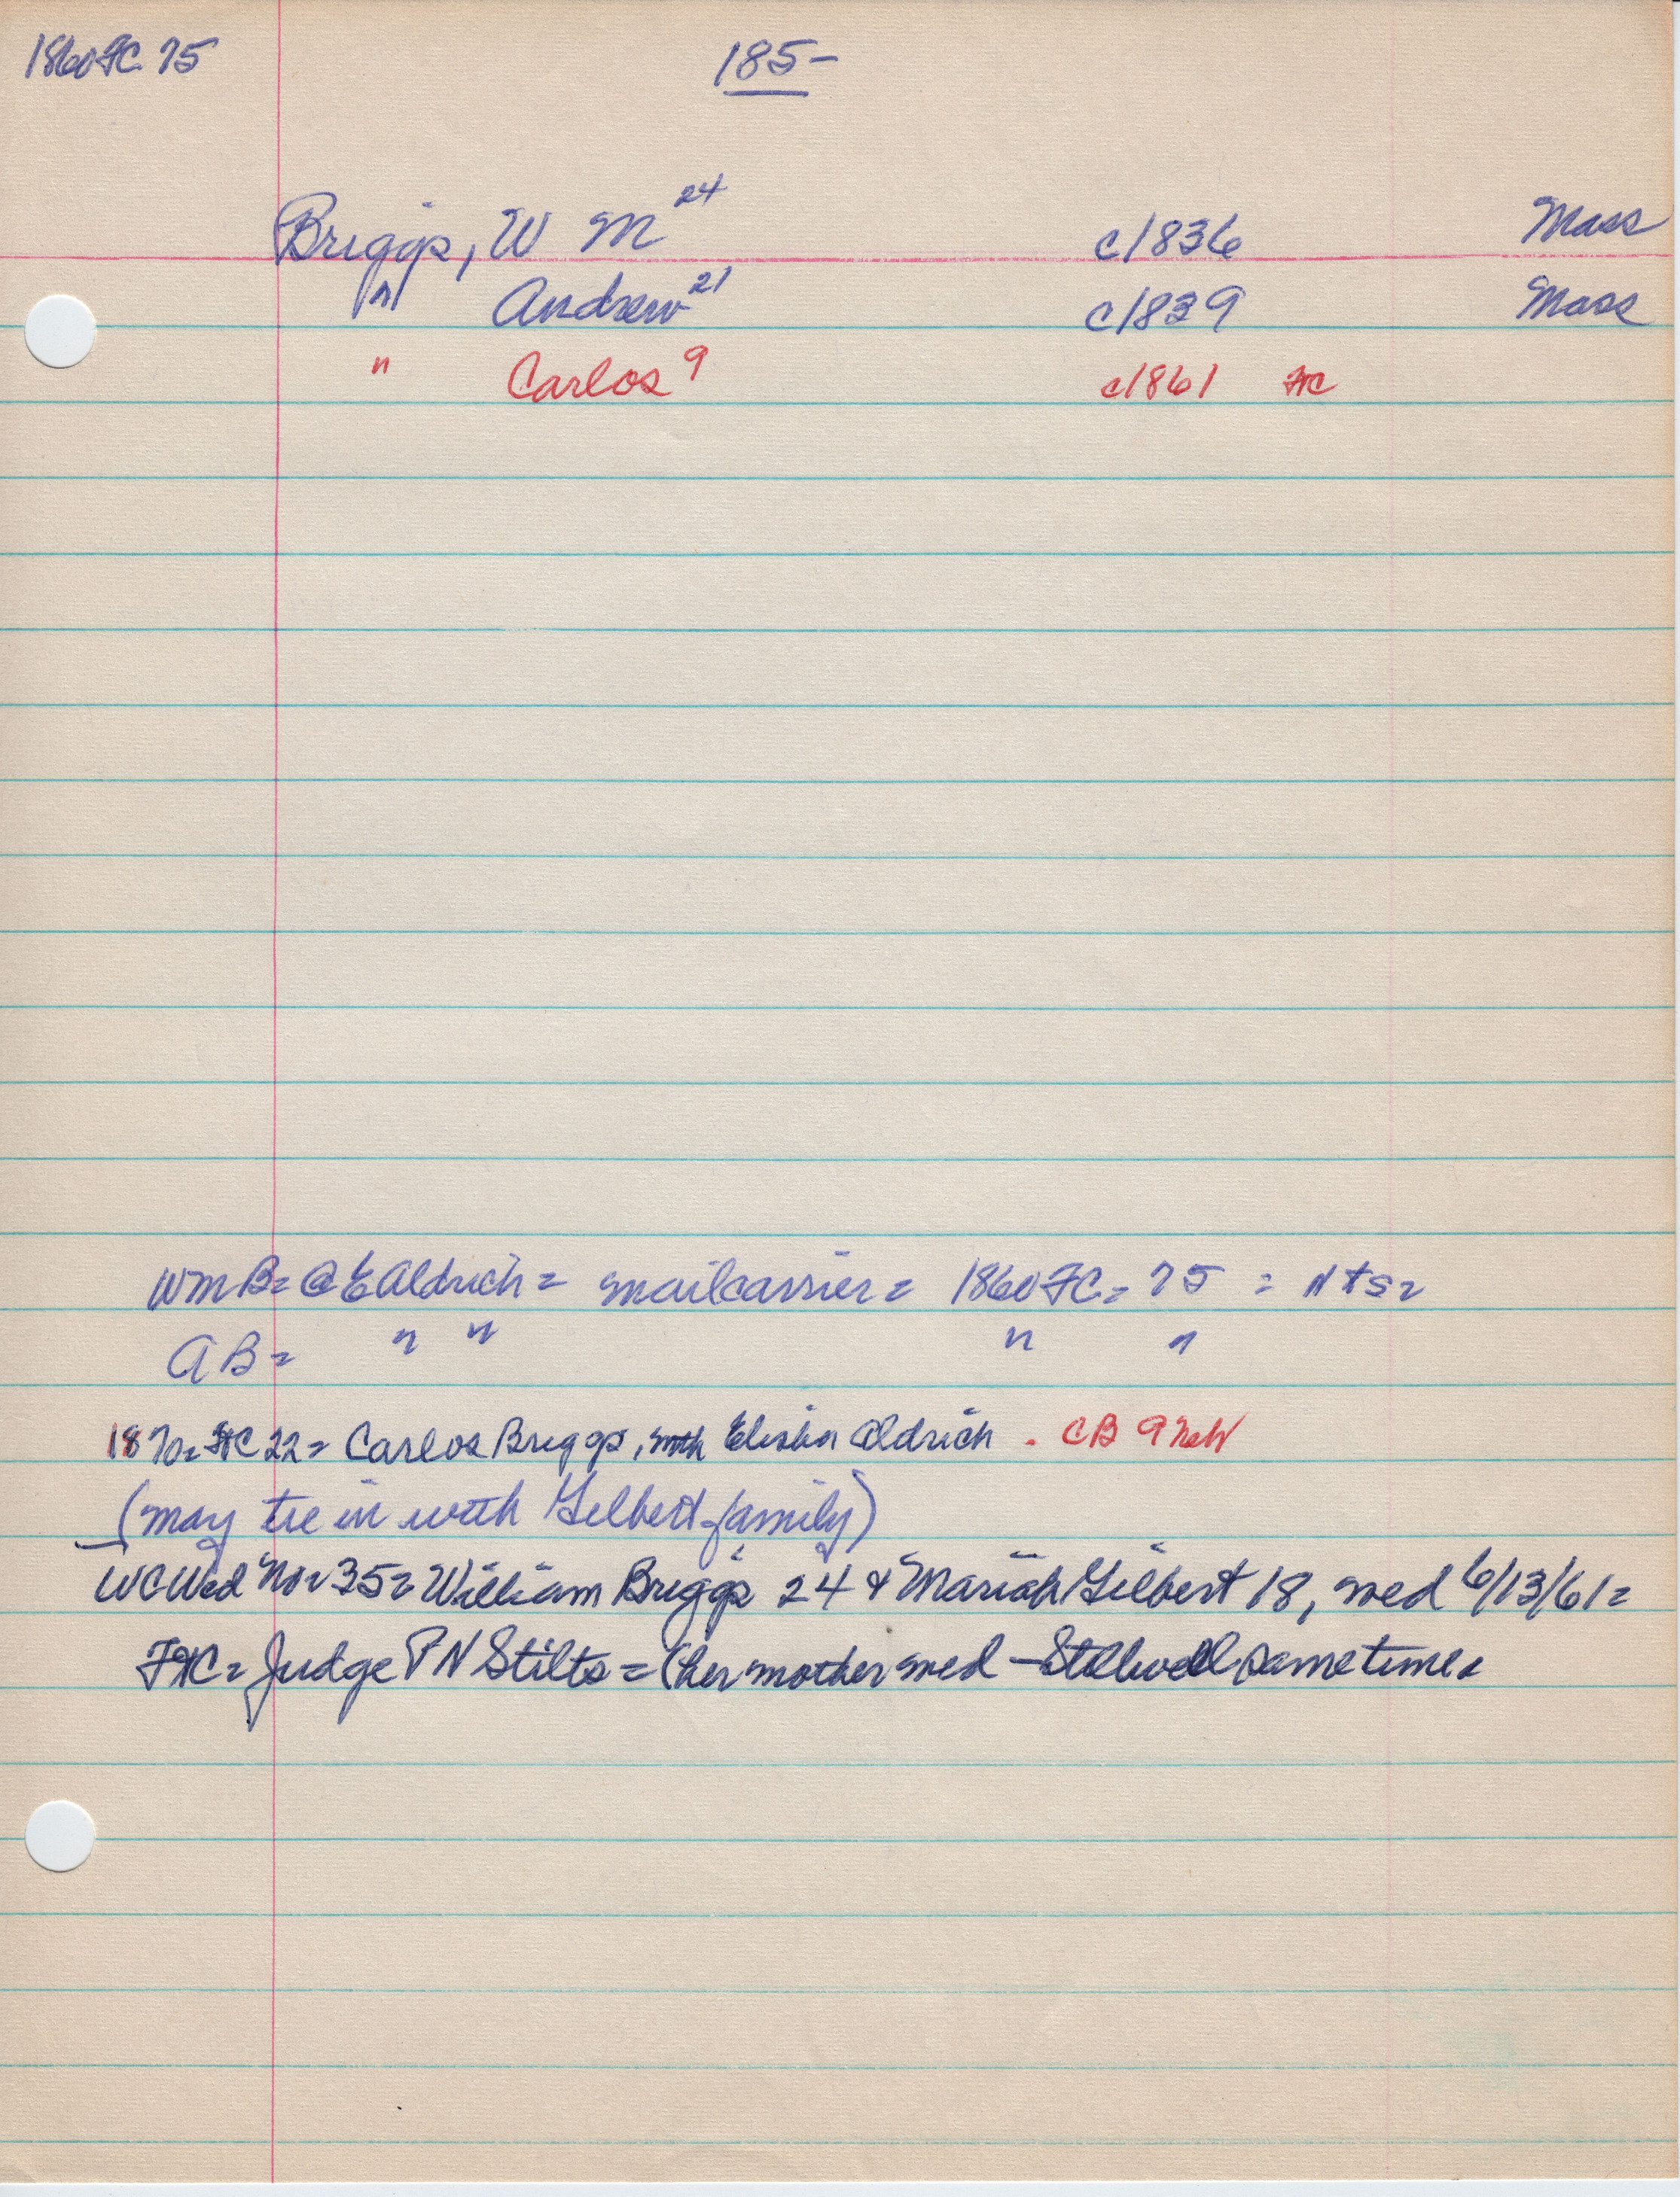 1860 FC 75
185-
Briggs, W M 24 c/836 Mass
" Andrew 21 c/839 Mass
" Carlos 9 c/861 FC
WmB= @ E Aldrich = mailcarrier = 1860 FC = 75 = NTS=
AB= " " " "
1870= FC 22= Carlos Briggs, with Elisha Aldrich. CB 9 Neb
(may tie in with Gilbert family)
WC Wed No 35= William Briggs 24 & Mariah Gilbert 18, wed 6/13/61=
FC= Judge P N Stilts = (her mother wed - Stillwell sametime=